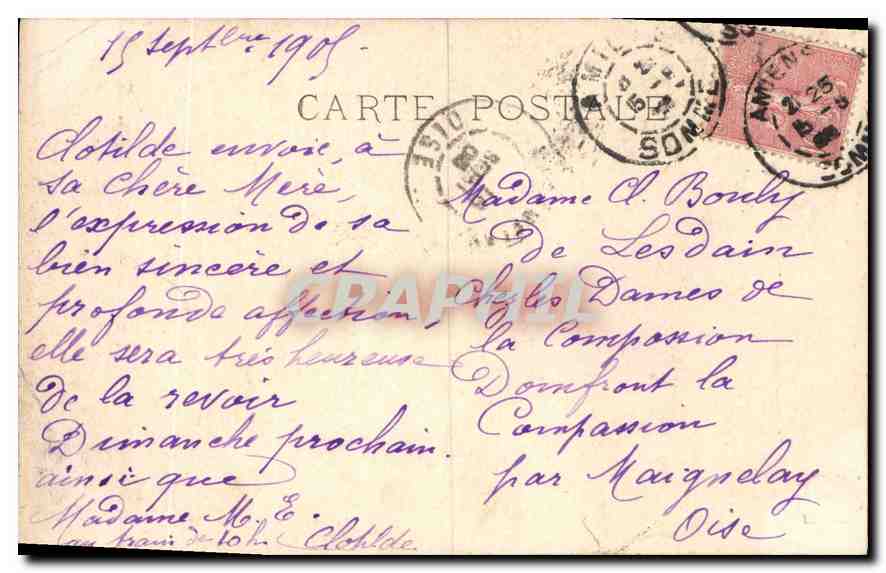 15 Septbre 1905
CARTE POSTALE
Clotilde envoie, à
sa chère Mère,
l'expression de sa
bien sincère et
profonde affection,
elle sera très heureuse
de la revoir
Dimanche prochain.
ainsi que
Madame M. E.
au train de 10h. Clotilde.
Madame Cl. Bouly
de Lesdain
Chez les Dames de
la Compassion
Domfront la
Compassion
par Maignelay
Oise
SOMME
AMIENS
21 25
SOMME
OISE
CPAPHIL